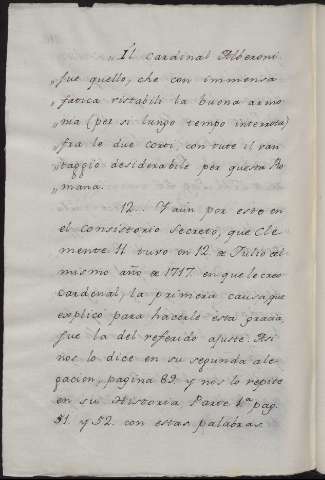 „Il cardinal Alberoni
„fue quello, che con immensa
„fatica ristabili la buona armo
„nia (per si lungo tempo interrotta)
„fra le due corti, con tute il van
„taggio desiderabile per questa Ro
„mana.
12... Y aún por esto en
el Consistorio Secreto, que Cle
mente 11 tuvo en 12 de Julio del
mismo año de 1717. en que le creo
cardenal, la primera causa, que
explicó para hacerle esta gracia,
fue la del referido ajuste. Asi
nos lo dice en su segunda ale
gacion, pagina 89. y nos lo repite
en su Historia Parte 1ª pag.
51. y 52. con estas palabras